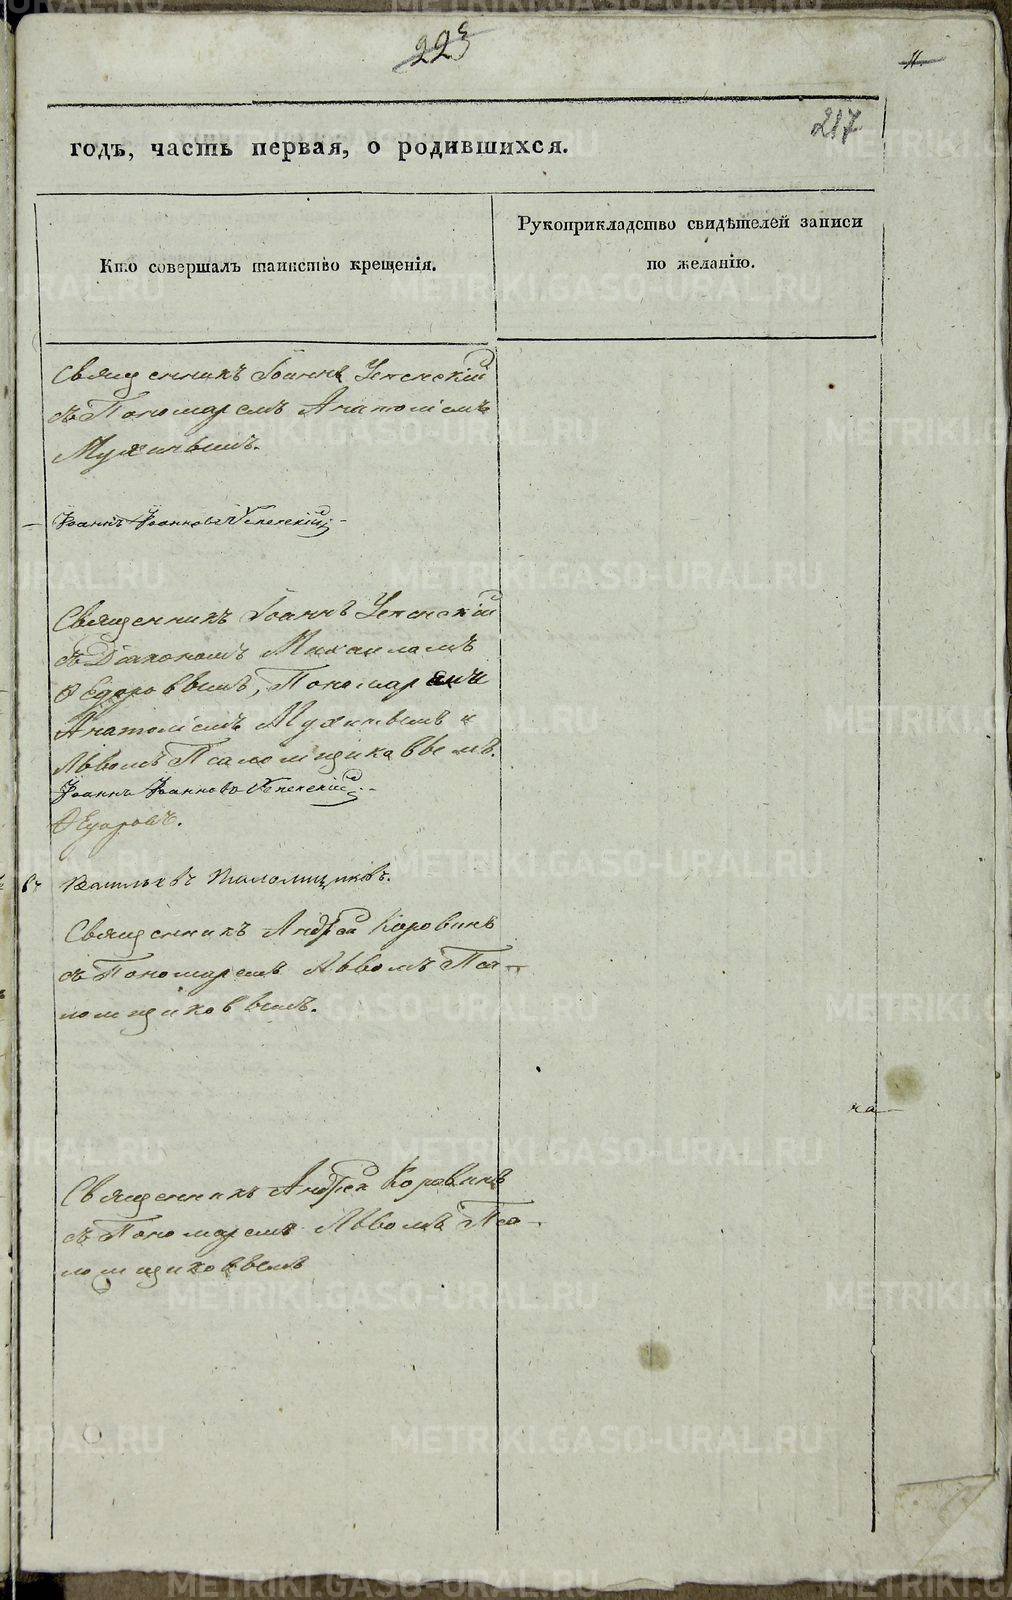 223
11
217
годъ, часть первая, о родившихся.
Кто совершалъ таинство крещенія.
Рукоприкладство свидѣтелей записи
по желанію.
Священникъ Іоаннъ Успенскій
съ Пономаремъ Анатоліемъ
Мухинымъ.
Іоаннъ Іоанновъ Успенскій
Священникъ Іоаннъ Успенскій
съ Діакономъ Михаиломъ
Ѳедоровымъ, Пономарями
Анатоліемъ Мухинымъ и
Львомъ Псаломщиковымъ.
Іоаннъ Іоанновъ Успенскій
Ѳедоровъ.
Псаломщиковъ.
Священникъ Андрей Коровинъ
съ Пономаремъ Львомъ Пса-
ломщиковымъ.
на
Священникъ Андрей Коровинъ
съ Пономаремъ Львомъ Пса-
ломщиковымъ
METRIKI.GASO-URAL.RU